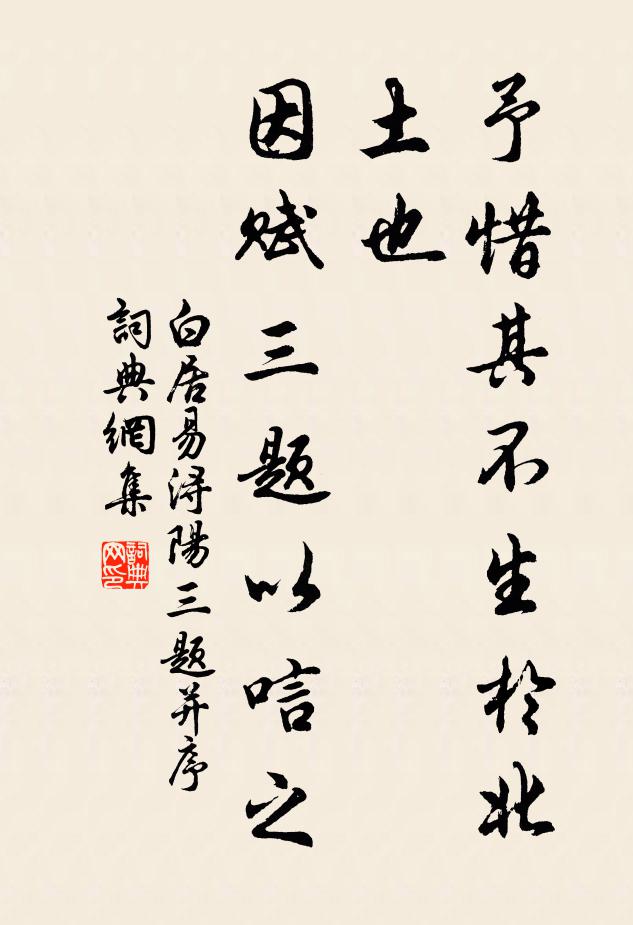 予惜其不生於北
土也
因赋三题以唁之
白居易潯陽三题并序
詞典網集
詞典网印